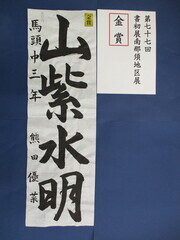 第七十七回
書初展南那須地区展
金賞
山紫水明
馬頭中三年
熊田優菜